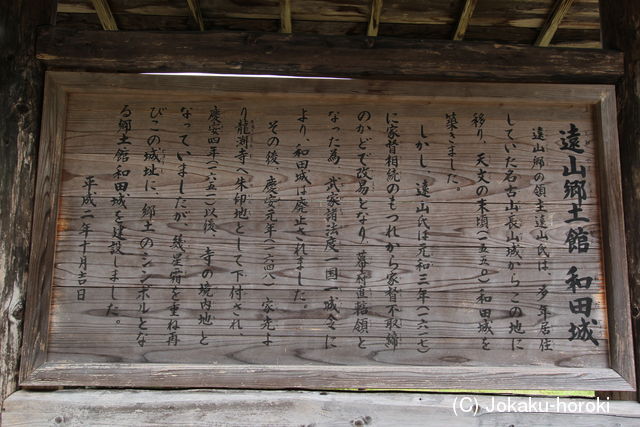 遠山郷土館 和田城
遠山郷の領主遠山氏は、多年居住
していた名古山長山城からこの地に
移り、天文の末頃(一五五〇)和田城を
築きました。
しかし、遠山氏は元和三年(一六一七)
に家督相続のもつれから家督不取締
のかどで改易となり、幕府直轄領と
なった為、武家諸法度一国一城令に
より、和田城は廃止されました。
その後、慶安元年(一六四八)家光よ
り龍渕寺へ朱印地として下付され、
慶安四年(一六五一)以後、寺の境内地と
なっていましたが、幾星霜を重ね再
びこの城址に、郷土のシンボルとな
る郷土館和田城を建設しました。
平成二年十月吉日
(C) Jokaku-horoki